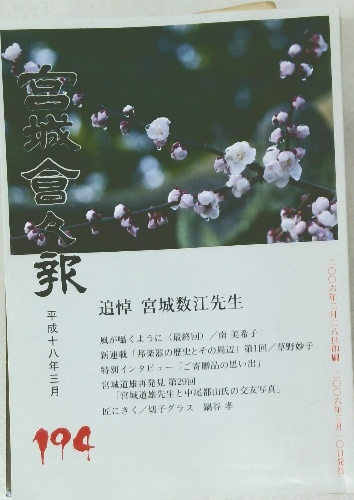 宮城會々報
平成十八年三月
194
追悼 宮城数江先生
風が囁くように（最終回）／南 美希子
新連載「邦楽器の歴史とその周辺」第1回／草野妙子
特別インタビュー「ご寄贈品の思い出」
宮城道雄再発見 第29回
「宮城道雄先生と中尾都山氏の交友写真」
匠にきく／切子グラス 鍋谷 孝
二〇〇六年二月二八日印刷 二〇〇六年三月一〇日発行